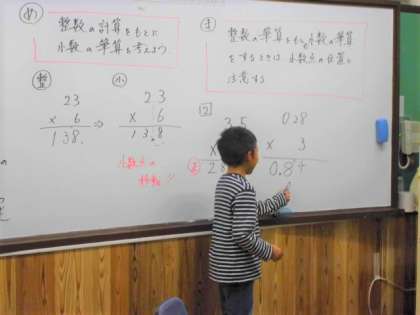 め 整数の計算をもとに
小数の筆算を考えよう。
ま 整数の筆算をもとに小数の筆算
をするときは、小数点の位置に
注意する
整
23
× 6
138.
⇒
小
2.3
× 6
13.8
小数点の
移動!!
2
3.5
×
2
0.28
× 3
0.84